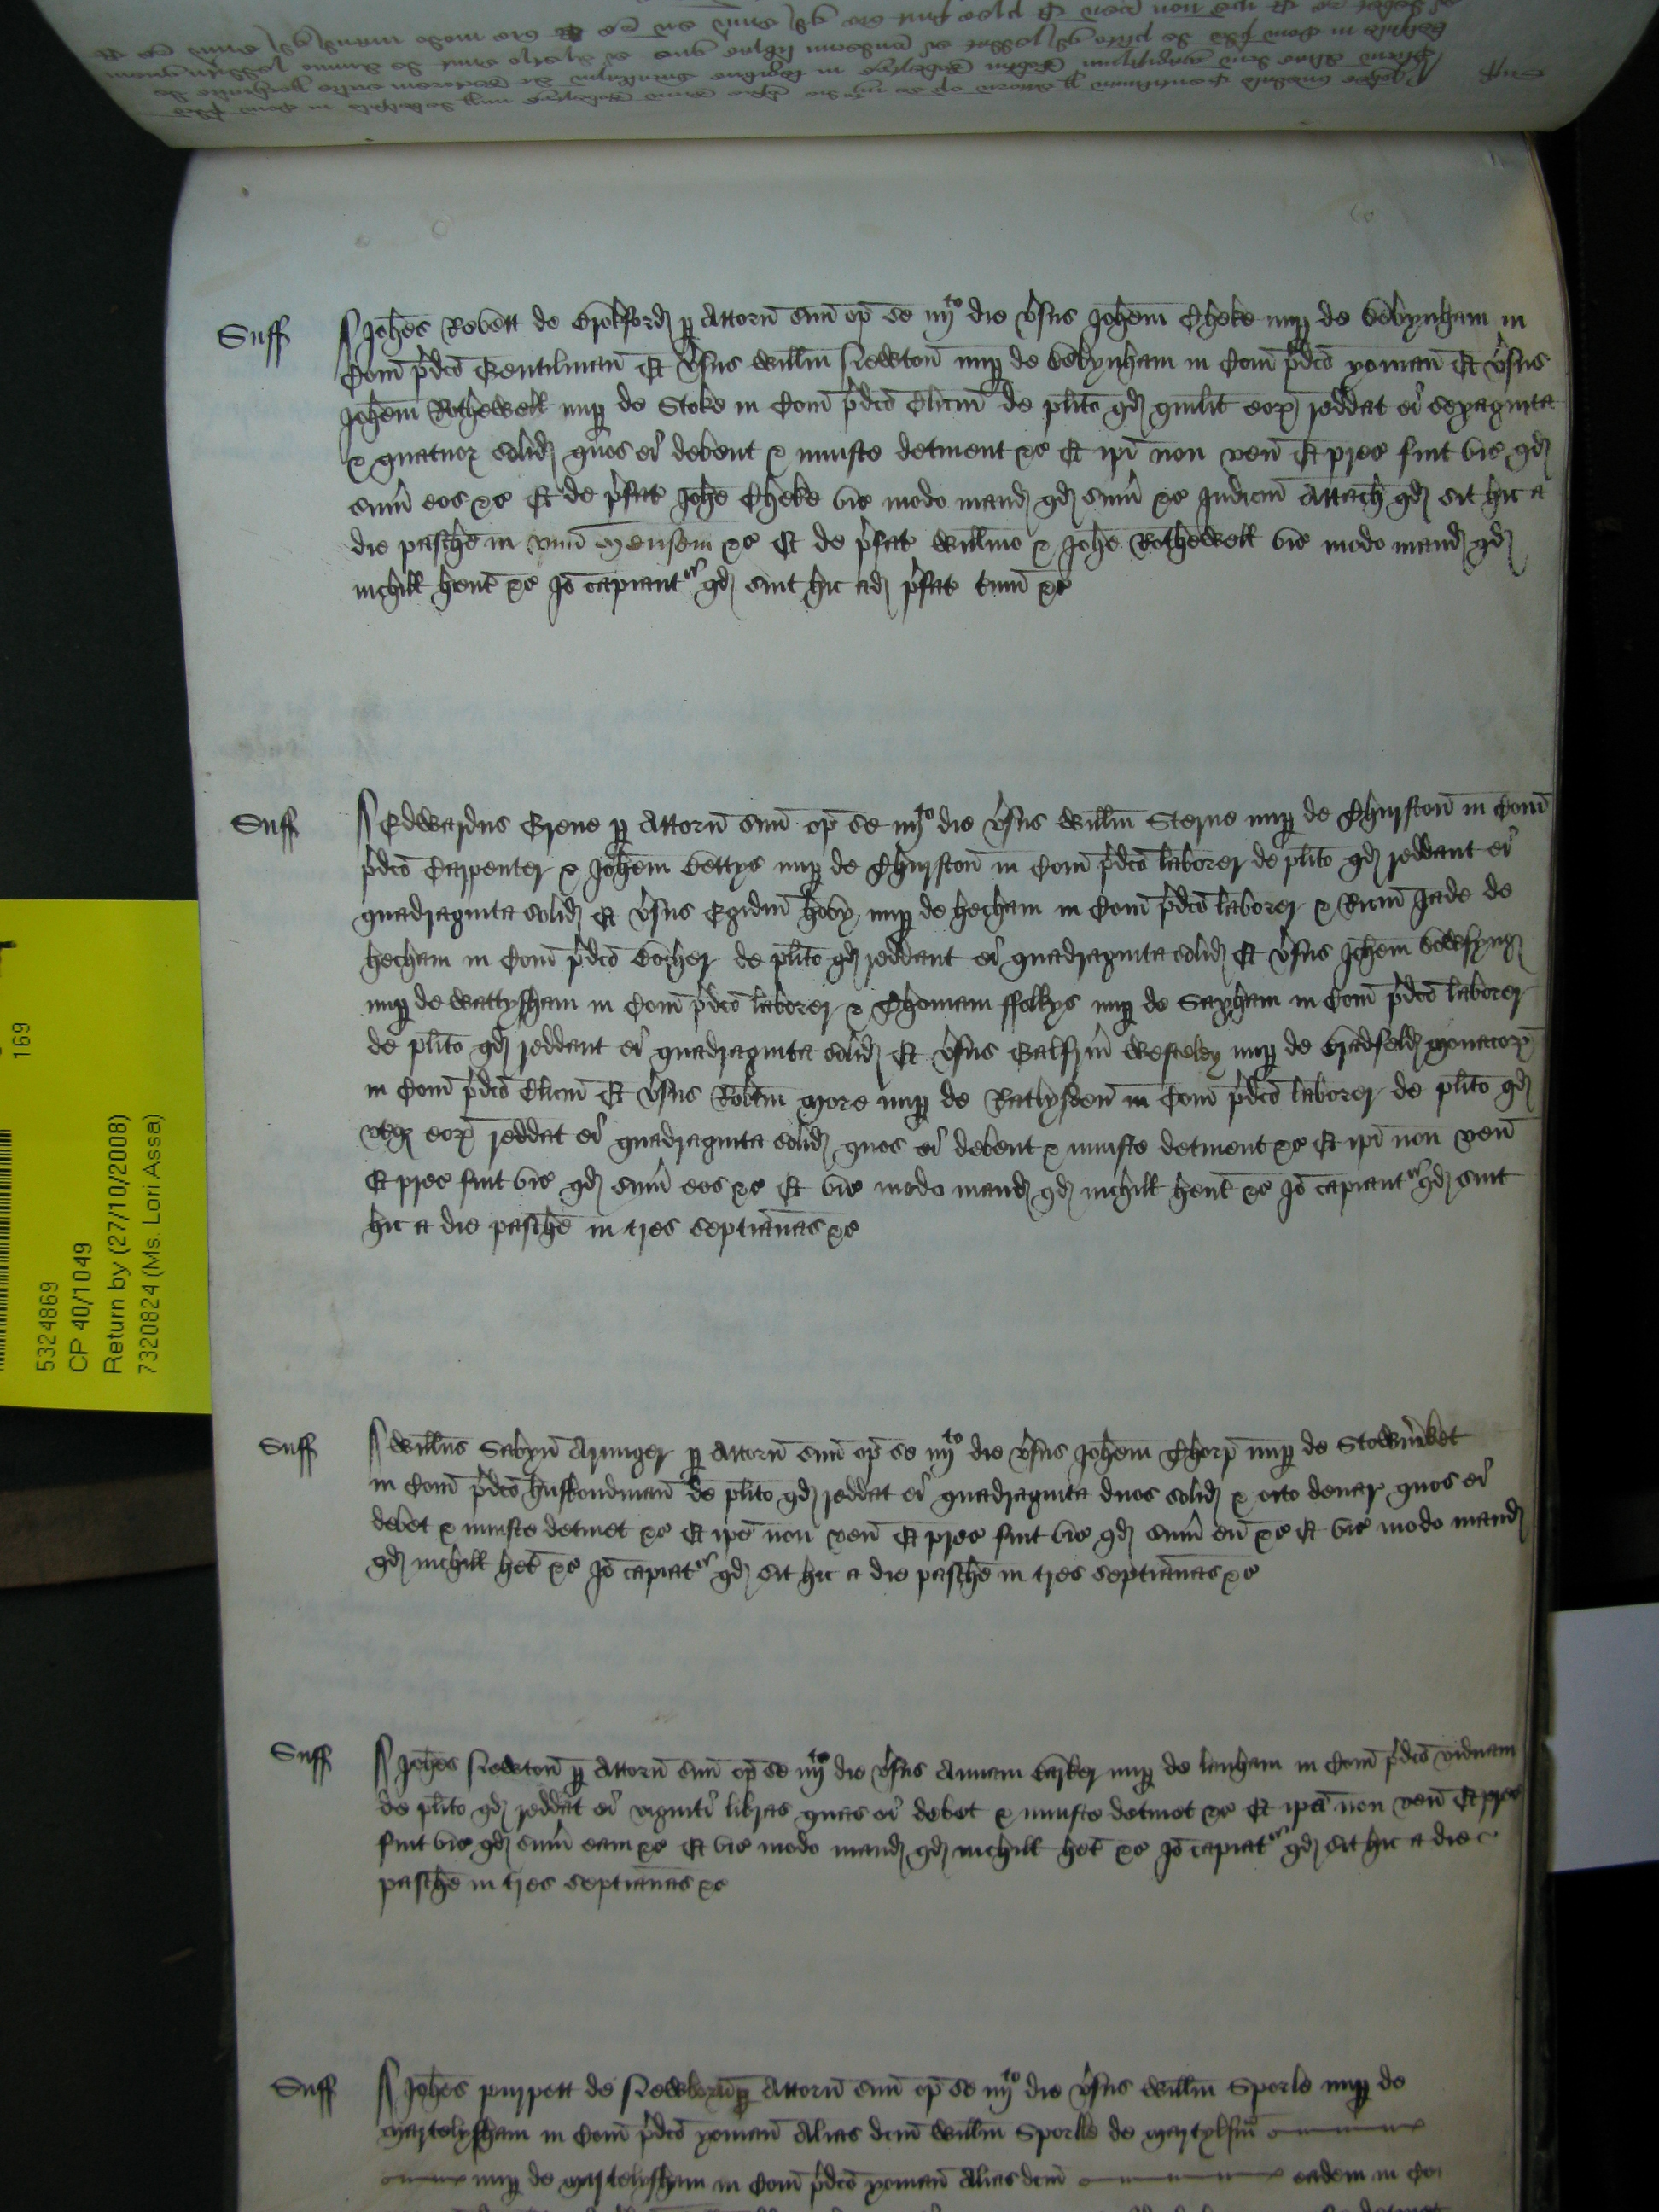 Suff Johes Robett de Brokford p Attorn suu op se iiijto die vsus Johem Cheke nup de Debynham in
Com pdco Gentilman Et vsus Willm Newton nup de Debynham in Com pdco yoman Et vsus
Johem Rothewell nup de Stoke in Com pdco Clicum de plito qd quilit eor reddat ei sexaginta
& quatuor solid quos ei debent & iniuste detinent &c Et ipi non ven Et prec fuit vic qd
sum eos &c Et de pfat Johe Cheke vic modo mand qd sum &c Judicm Attach qd sit hic a
die pasche in unu Mensem &c Et de pfat Willmo & Johe Rothewell vic modo mand qd
nichill hent &c Jo capiantur qd sint hic ad pfat tmu &c
Suff Edwardus Grene p Attorn suu op se iiijto die vsus Willm Sterne nup de Thurston in Com
pdco Carpenter & Johem Bettys nup de Thurston in Com pdco laborer de plito qd reddant ei
quadraginta solid Et vsus Egidm hoby nup de hecham in Com pdco laborer & Ricm Jade de
hecham in Com pdco Bocher de plito qd reddant ei quadraginta solid Et vsus Johem
nup de Wattysham in Com pdco laborer & Thomam ffolkys nup de Saxham in Com pdco laborer
de plito qd reddant ei quadraginta solid Et vsus Galfrm Westeley nup de Bradfeld Monacor
in Com pdco Clicum Et vsus Robtm More nup de Ratlysden in Com pdco laborer de plito qd
utq eor reddat ei quadraginta solid quos ei debent & iniuste detinent &c Et ipi non ven
Et prec fuit vic qd sum eos &c Et vic modo mand qd nichill hent &c Jo capiantur qd sint
hic a die pasche in tres septianas &c
Suff Willms Sabyn Armiger p Attorn suu op se iiijto die vsus Johem Thorp nup de Stowmket
in Com pdco husbondman de plito qd reddat ei quadraginta duos solid & octo denar quos ei
debet & iniuste detinet &c Et ipe non ven Et prec fuit vic qd sum eu &c Et vic modo mand
qd nichill het &c Jo capiatur qd sit hic a die pasche in tres septianas &c
Suff Johes Newton p Attorn suu op se iiijto die vsus Annam Barker nup de lanham in Com pdco viduam
de plito qd reddat ei viginti libras quas ei debet & iniuste detinet &c Et ipa non ven Et prec
fuit vic qd sum eam &c Et vic modo mand qd nichill het &c Jo capiatur qd sit hic a die
pasche in tres septianas &c
Suff Johes purpett de Newborn p Attorn suu op se iiijto die vsus Willm Sporle nup de
Martelysham in Com pdco yoman Alias dcm Willm Sporlle de
nup de Martelysham in Com pdco yoman Alias dcm eadem in Com
5324869
CP 40/1049
Return by (27/10/2008)
7320824 (Ms. Lori Assa)
169